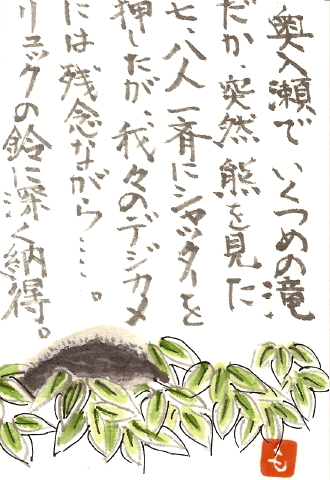 奥入瀬で いくつめの滝
だか、突然 熊を見た
七、八人 一斉にシャッターを
押したが、我々のデジカメ
には残念ながら…。
リュックの鈴に深く納得。
も